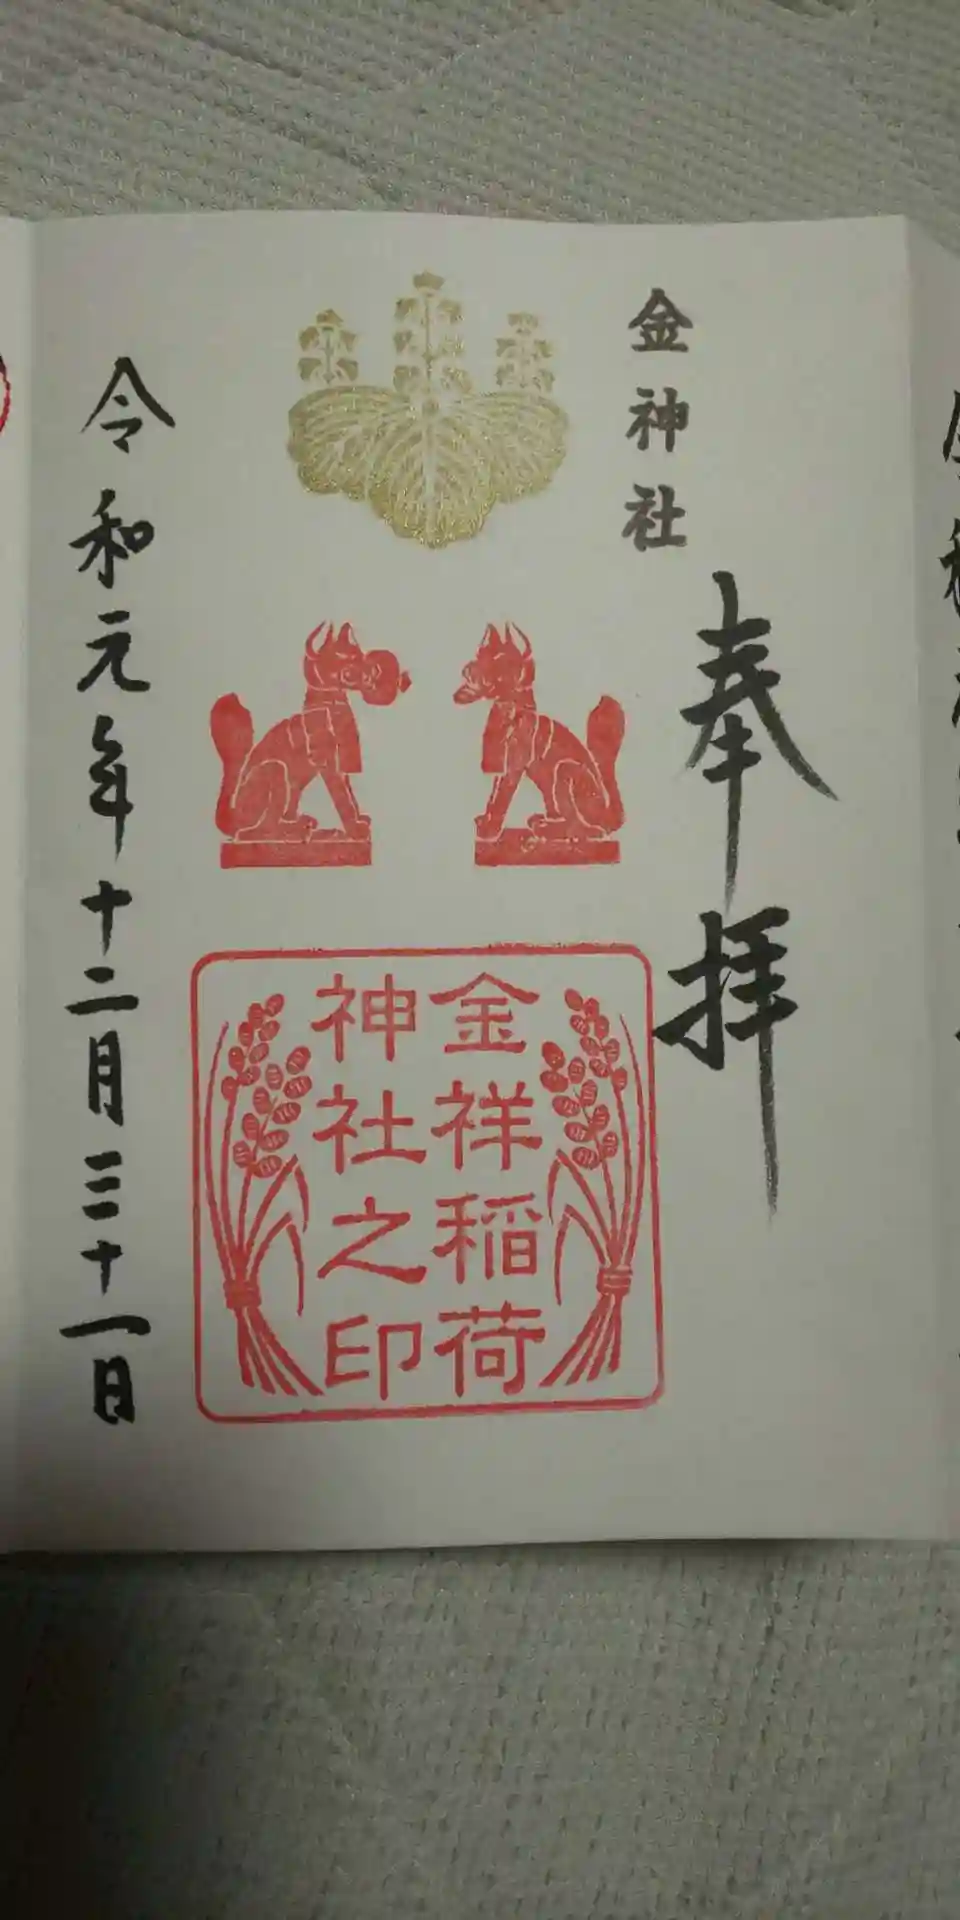 金神社
奉拝
金祥稲荷
神社之印
令和元年十二月三十一日